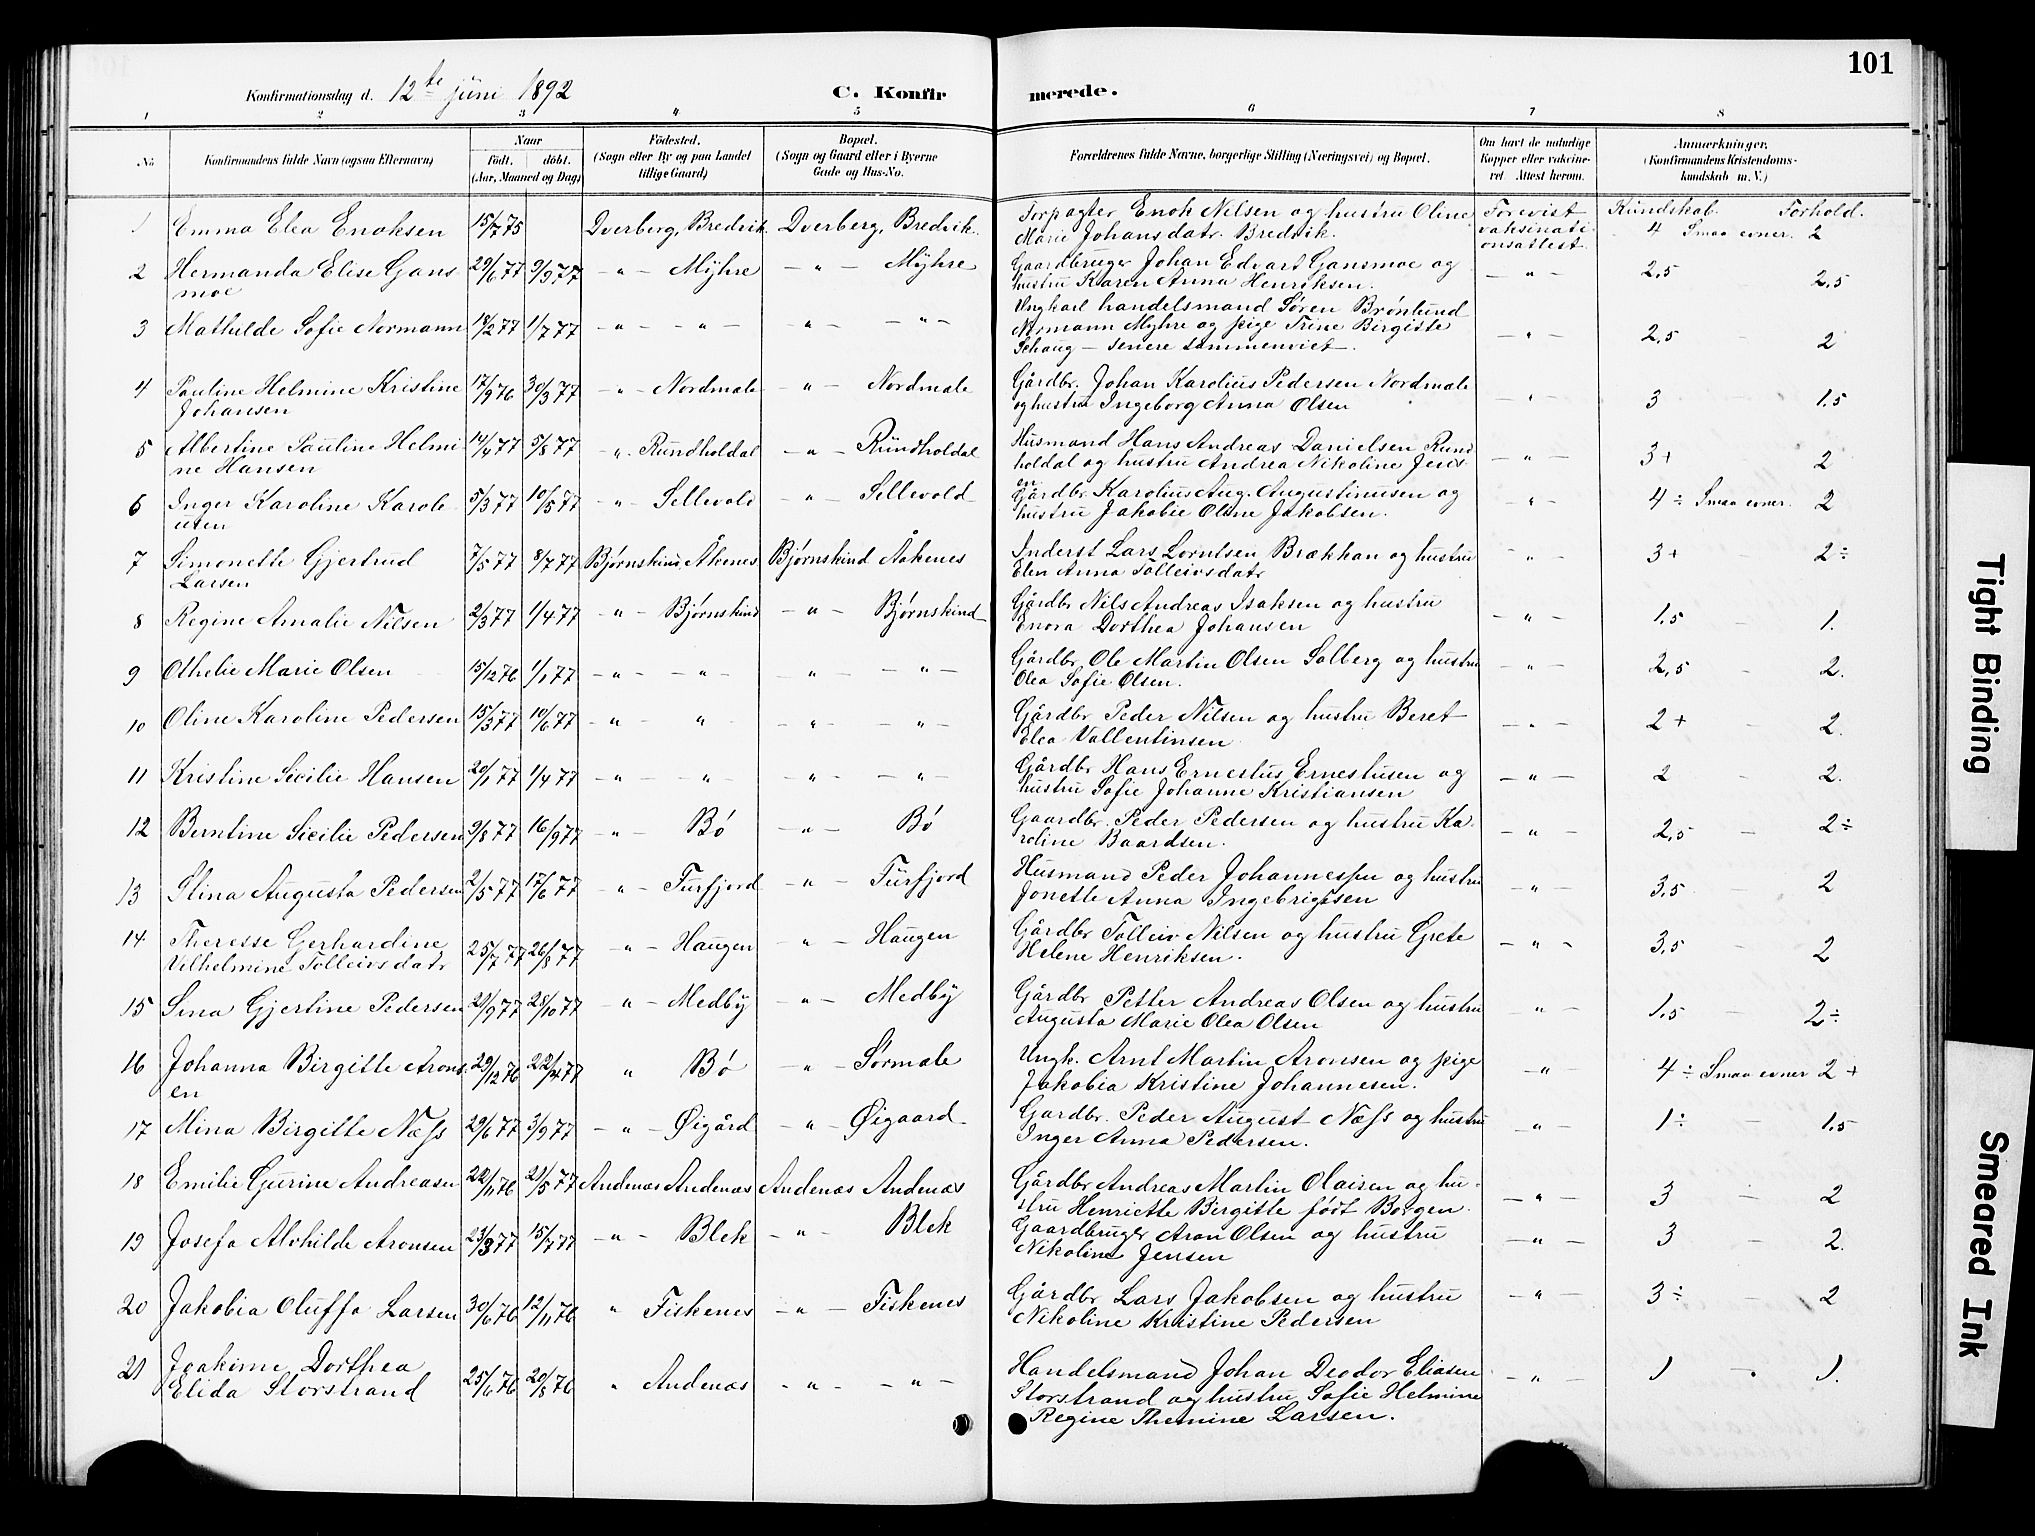 101
Konfirmationsdag d. 12te juni 1892 C. Konfir merede.
1 2 3 4 5 6 7 8
No Konfirmandens fulde Navn (ogsaa Efternavn) Naar Födt. döbt. (Aar, Maaned og Dag) Födested. (Sogn eller By og paa Landet tillige Gaard) Bopæl. (Sogn og Gaard eller i Byerne Gade og Hus-No. Forældrenes fulde Navne, borgerlige Stilling (Næringsvei) og Bopæl. Om havt de naturlige Kopper eller vakcineret. Attest herom. Anmærkninger. (Konfirmandens Kristendomskundskab m. V.)
Kundskab. Forhold.
1 Emma Elea Enoksen 15/7 75 Dverberg, Bredvik Dverberg, Bredvik. Forpagter Enok Nilsen og hustru Oline Forevist 4 Smaa evner. 2
Marie Johansdatr. Bredvik. vaksinati-
onsattest.
2 Hermanda Elise Gans 29/6 77 9/9 77 - " - Myhre - " - Myhre Gaardbruger Johan Edvart Gansmoe og - " - 2,5 2,5
moe hustru Karen Anna Henriksen.
3 Mathilde Sofie Normann 14/2 77 1/7 77 - " - - " - - " - - " - Ungkarl handelsmand Søren Brønlund
Normann Myhre og pige Trine Birgitte - " - 2,5 - 2
Schaug - senere sammenviet -.
4 Pauline Helmine Kristine 17/9 76 30/3 77 - " - Nordmele - " - Nordmele Gårdbr. Johan Karolius Pedersen Nordmele
Johansen og hustru Ingeborg Anna Olsen - " - 3 1.5
5 Albertine Pauline Helmi 14/4 77 5/8 77 - " - Rundholdal - " - Rundholdal Husmand Hans Andreas Danielsen Rund
ne Hansen holdal og hustru Andrea Nikoline Jens- - " - 3+ 2
en
6 Inger Karoline Karoli 5/3 77 10/5 77 - " - Sellevold - " - Sellevold Gårdbr. Karolius Aug. Augustinusen og " - 4 ÷ Smaa evner. 2
usen hustru Jakobie Oline Jakobsen.
7 Simonette Gjertrud 7/5 77 8/7 77 Bjørnskind, Åkenes Bjørnskind Aakenes Inderst Lars Lorntsen Brækkan og hustru " - 3+ - 2÷
Larsen Elen Anna Tolleivsdatr
8 Regine Amalie Nilsen 2/3 77 1/4 77 - " - Bjørnskind - " - Bjørnskind Gårdbr Nils Andreas Isaksen og hustru - " - 1.5 - 1.
Enora Dorthea Johansen
9 Othelie Marie Olsen 15/12 76 1/1 77 - " - - " - " - - " - Gårdbr. Ole Martin Olsen Solberg og hustru - " - 2,5 - 2.
Olea Sofie Olsen.
10 Oline Karoline Pedersen 15/3 77 10/6 77 - " - " - - " - - " - Gårdbr. Peder Nilsen og hustru Beret - " - 2+ 2.
Elea Vallentinsen
11 Kristine Sicilie Hansen 20/1 77 1/4 77 - " - " - - " - - " - Gårdbr Hans Ernestus Ernestusen og - " - 2 - 2.
hustru Sofie Johanne Kristiansen
12 Berntine Sicilie Pedersen 9/8 77 16/9 77 - " - Bø - " - Bø Gaardbr. Peder Pedersen og hustru Ka- - " - 2,5 - 2÷
roline Baardsen.
13 Stina Augusta Pedersen 2/5 77 17/6 77 - " - Turfjord - " - Turfjord Husmand Peder Johannessen og hustru - " - 3,5 2
Jonette Anna Ingebrigtsen
14 Theresse Gerhardine 25/7 77 26/8 77 " - Haugen " - Haugen Gårdbr Tolleiv Nilsen og hustru Grete - " - 3,5 - 2
Vilhelmine Tolleivsdatr Helene Henriksen.
15 Sina Gjertine Pedersen 21/9 77 28/10 77 " - Medby - " - Medby Gårdbr. Petter Andreas Olsen og hustru - " - 1,5 - 2÷
Augusta Marie Olea Olsen
16 Johanna Birgitte Arons- 29/12 76 22/4 77 " Bø - " - Sørmele Ungk. Arnt Martin Aronsen og pige - " - 4 ÷ Smaa evner 2+
en Jakobia Kristine Johannesen.
17 Mina Birgitte Næss 29/6 77 3/9 77 - " - Øigård - " - Øigaard Gardbr. Peder August Næss og hustru - " - 1÷ - 1.5
Inger Anna Pedersen.
18 Emilie Gurine Andreasen 22/11 76 21/5 77 Andenæs Andenæs Andenæs Andenæs Gårdbr Andreas Martin Olaisen og hu- - " - 3 - 2
stru Henriette Birgitte født Borgen
19 Josefa Alvhilde Aronsen 23/3 77 15/7 77 - " - Blek - " - Blek Gaardbruger Aron Olsen og hustru - " - 3 - 2.
Nikoline Jensen
20 Jakobia Oluffa Larsen 30/6 76 12/11 76 " Fiskenes - " - Fiskenes Gårdbr Lars Jakobsen og hustru - " - 3÷ - 2
Nikoline Kristine Pedersen
21 Joakime Dorthea 25/6 76 20/8 76 " Andenæs - " - - " - Handelsmand Johan Deodor Eliasen - " - 1 - 1.
Elida Storstrand Storstrand og hustru Sofie Helmine
Regine Themine Larsen.
Tight Binding
Smeared Ink